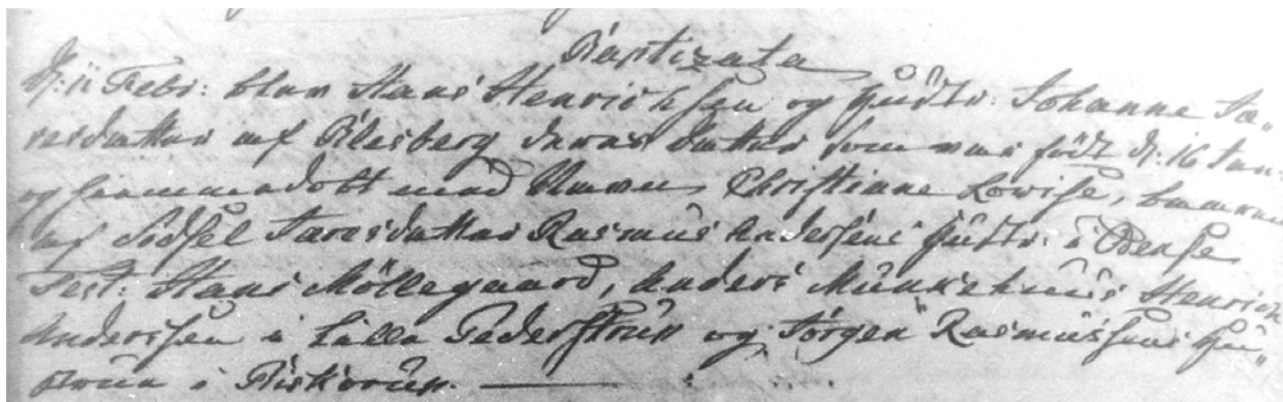 Baptizata
d: 11 Febr: blev Hans Henrichsen og Hustr: Johanne La„
resdatter af Blesberg deres datter som var födt d: 16 Jan:
og hiemmedöbt med Navn Christiane Lowise, baaren
af Sidsel Laresdatter Rasmus Andersens Hustr: i Odense
Test: Hans Möllegaard, Anders Munkehuus Henrich
Anderssen i Lille Pederstrup og Jörgen Rasmussens Hu„
strue i Biskorup.